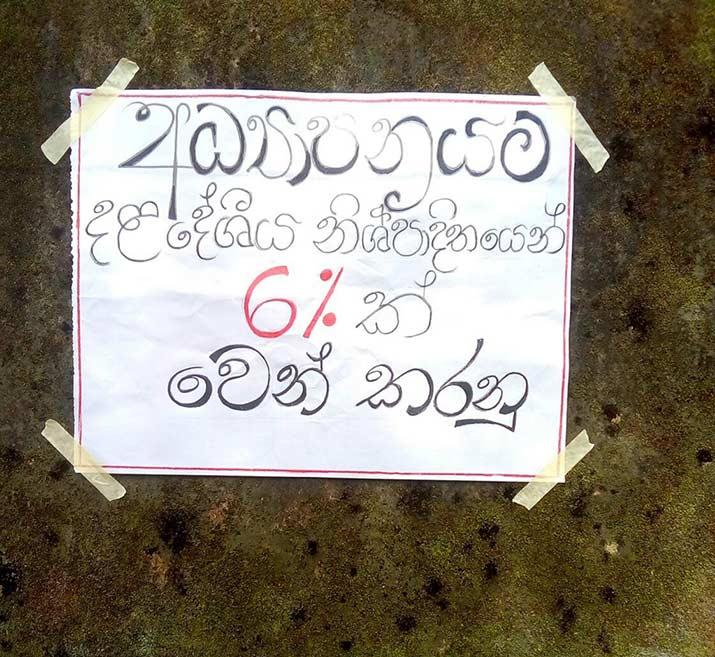 අධ්‍යාපනයම
දළ දේශීය නිශ්පාදිතයෙන්
6% ක්
වෙන් කරනු